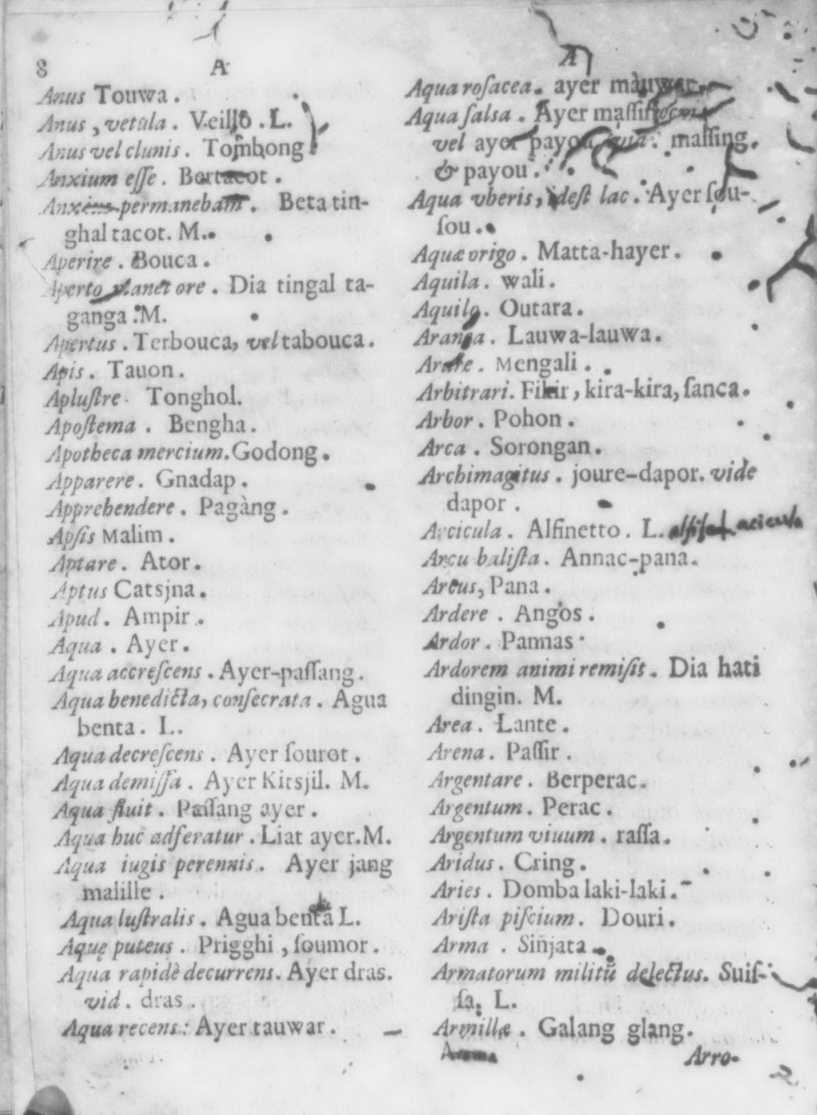 8 A
Anus Touwa.
Anus, vetula. Veilho. L.
Anus vel clunis. Tombong
Anxium esse. Bertacot.
permanebam. Beta tin-
ghal tacot. M.
Aperire. Bouca.
Aperto manet ore. Dia tingal ta-
ganga. M.
Apertus. Terbouca, vel tabouca.
Apis. Tauon.
Apluſtre. Tonghol.
Apoſtema. Bengha.
Apotheca mercium. Godong.
Apparere. Gnadap.
Apprehendere. Pagàng.
Apſis Malim.
Aptare. Ator.
Aptus Catsjna.
Apud. Ampir.
Aqua. Ayer.
Aqua accreſcens. Ayer-paſſang.
Aqua benedicta, conſecrata. Agua
benta. L.
Aqua decreſcens. Ayer ſourot.
Aqua demiſſa. Ayer Kitsjil. M.
Aqua fluit. Paſſang ayer.
Aqua huc adferatur. Liat ayer. M.
Aqua iugis perennis. Ayer jang
malille.
Aqua luſtralis. Agua benta L.
Aquę puteus. Prigghi, ſoumor.
Aqua rapidè decurrens. Ayer dras.
vid. dras.
Aqua recens: Ayer tauwar.
A
Aqua roſacea. ayer mauwar.
Aqua ſalsa. Ayer maſſin
vel ayer payou, maſſing.
& payou.
Aqua vberis, ideſt lac. Ayer ſou-
ſou.
Aquæ origo. Matta-hayer.
Aquila. wali.
Aquilo. Outara.
Aranea. Lauwa-lauwa.
Arare. Mengali.
Arbitrari. Fikir, kira-kira, ſanca.
Arbor. Pohon.
Arca. Sorongan.
Archimagitus. joure-dapor. vide
dapor.
Arcicula. Alfinetto. L.
Arcu baliſta. Annac-pana.
Arcus, Pana.
Ardere. Angos.
Ardor. Pannas
Ardorem animi remiſit. Dia hati
dingin. M.
Area. Lante.
Arena. Paſſir.
Argentare. Berperac.
Argentum. Perac.
Argentum viuum. raſſa.
Aridus. Cring.
Aries. Domba laki-laki.
Ariſta piſcium. Douri.
Arma. Sinjata.
Armatorum militũ delectus. Suiſ-
ſa. L.
Armillæ. Galang glang.
Arro-